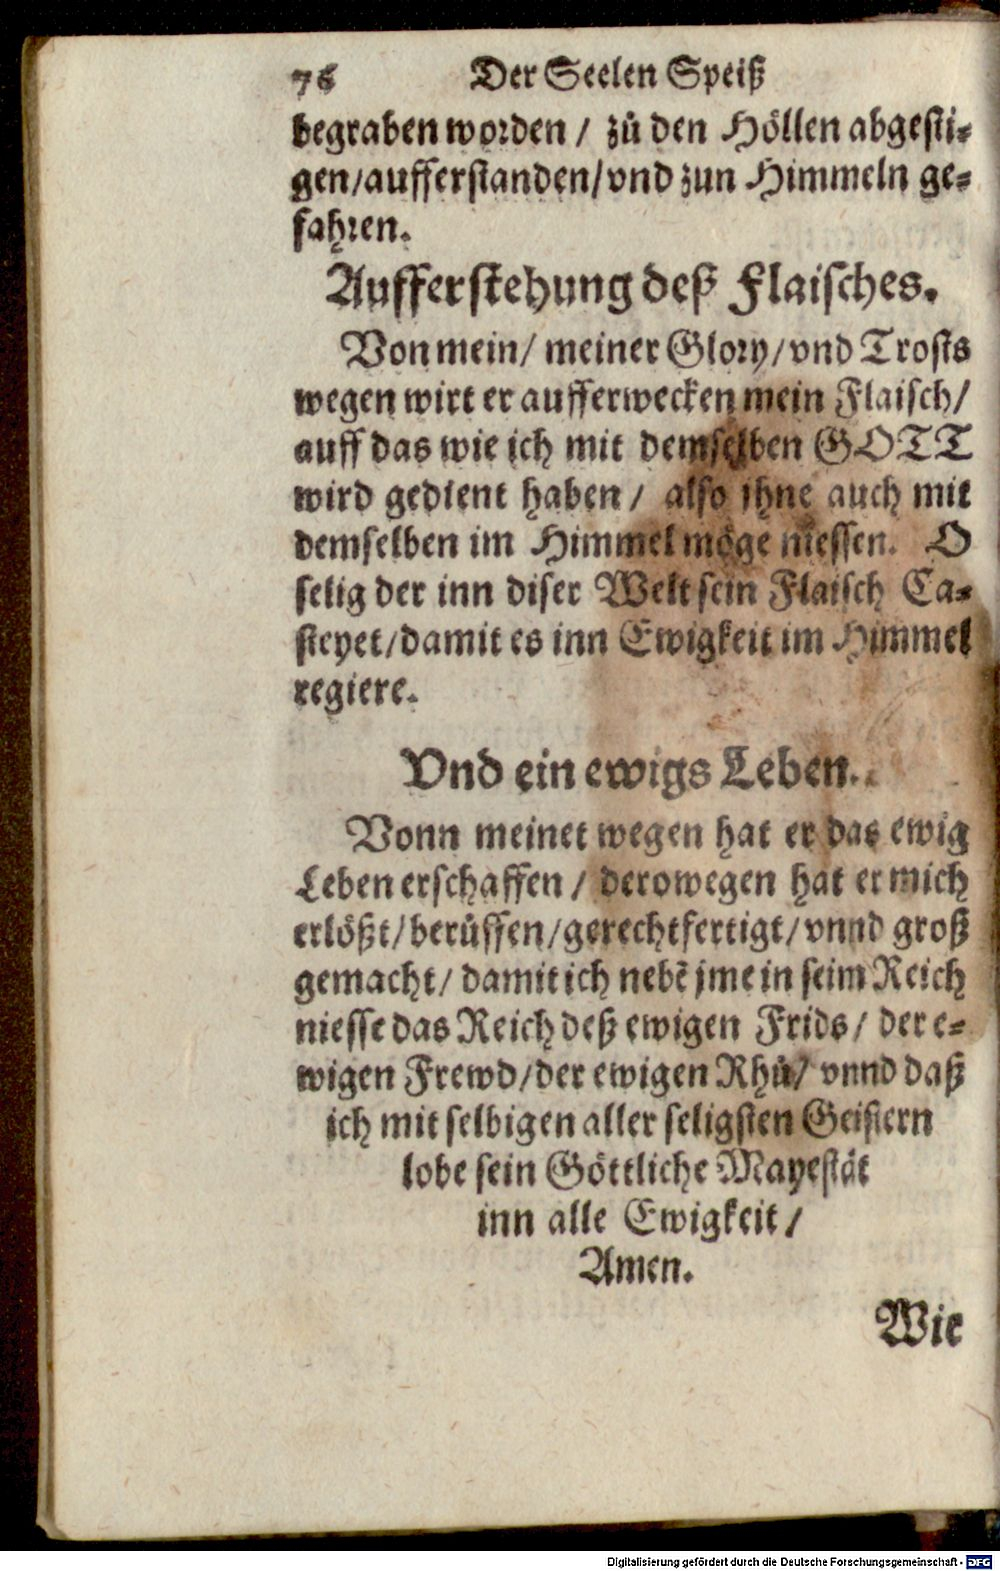 76 Der Seelen Speiß
begraben worden / zů den Höllen abgesti-
gen/aufferstanden/vnd zun Himmeln ge-
fahren.
Aufferstehung deß Flaisches.
Von mein/ meiner Glory/vnd Trosts
wegen wirt er aufferwecken mein Flaisch/
auff das wie ich mit demselben GOTT
wird gedient haben / also ihne auch mit
demselben im Himmel möge niessen. O
selig der inn diser Welt sein Flaisch Ca-
steyet/damit es inn Ewigkeit im Himmel
regiere.
Vnd ein ewigs Leben.
Vonn meinet wegen hat er das ewig
Leben erschaffen / derowegen hat er mich
erlößt/berůffen/gerechtfertigt/vnnd groß
gemacht/ damit ich nebẽ jme in seim Reich
niesse das Reich deß ewigen Frids/ der e-
wigen Frewd/der ewigen Rhů/ vnnd daß
ich mit selbigen aller seligsten Geistern
lobe sein Göttliche Mayestät
inn alle Ewigkeit /
Amen.
Wie
Digitalisierung gefördert durch die Deutsche Forschungsgemeinschaft - DFG